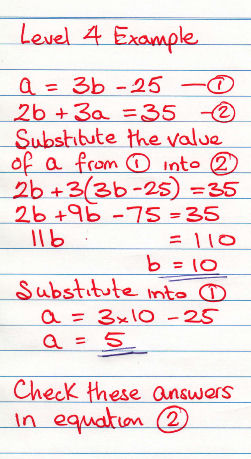 Level 4 Example
a = 3b - 25 —①
2b + 3a = 35 -②
Substitute the value
of a from ① into ②
2b + 3(3b - 25) = 35
2b + 9b - 75 = 35
11b = 110
b = 10
Substitute into ①
a = 3x10 - 25
a = 5
Check these answers
in equation ②